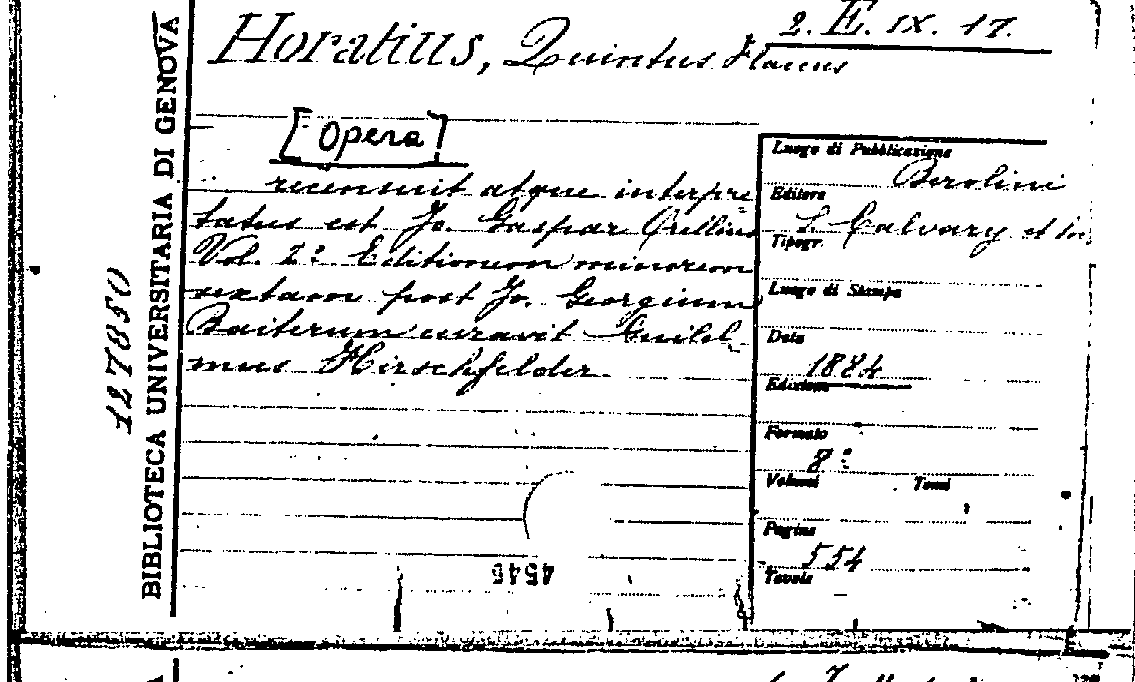 2. E. IX. 17.
Horatius, Quintus Flacus
[Opera]
recensuit atque interpre
tatus est Jo. Gaspar Orellius
Vol. 2º Editionem minorem
sextam post Jo. Georgium
Baiterum curavit Guilel-
mus Hirschfelder
Luogo di Pubblicazione
Berolini
Editore
S. Calvary et
Tipogr.
Luogo di Stampa
Data
1884
Edizione
Formato
8º
Volumi Tomi
Pagine
554
Tavole
4546
BIBLIOTECA UNIVERSITARIA DI GENOVA
127850